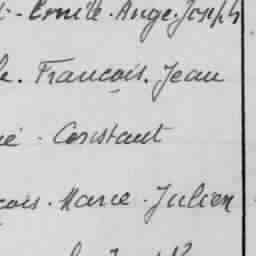 Emile. Ange. Joseph
François. Jean
Constant
Marie. Julien